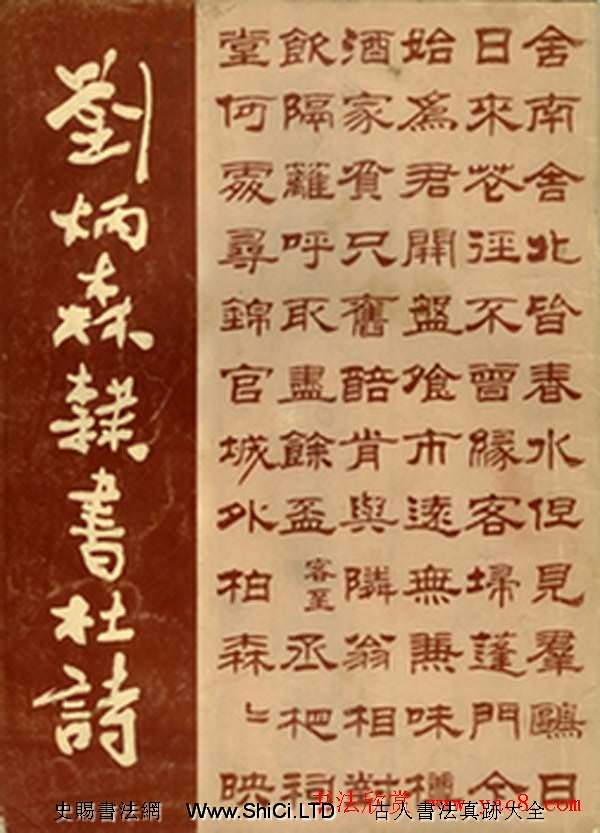 劉炳森隸書杜詩
舍南舍北皆春水但見羣鷗日
日來花徑不曾緣客埽蓬門今
始爲君開盤飧市遠無兼味樽
酒家貧只舊醅肯與隣翁相對
飲隔籬呼取盡餘盃 客至 丞相祠
堂何處尋錦官城外柏森〻映
书法欣赏
史賜書法網 Www.ShiCi.LTD 古人書法真跡大全